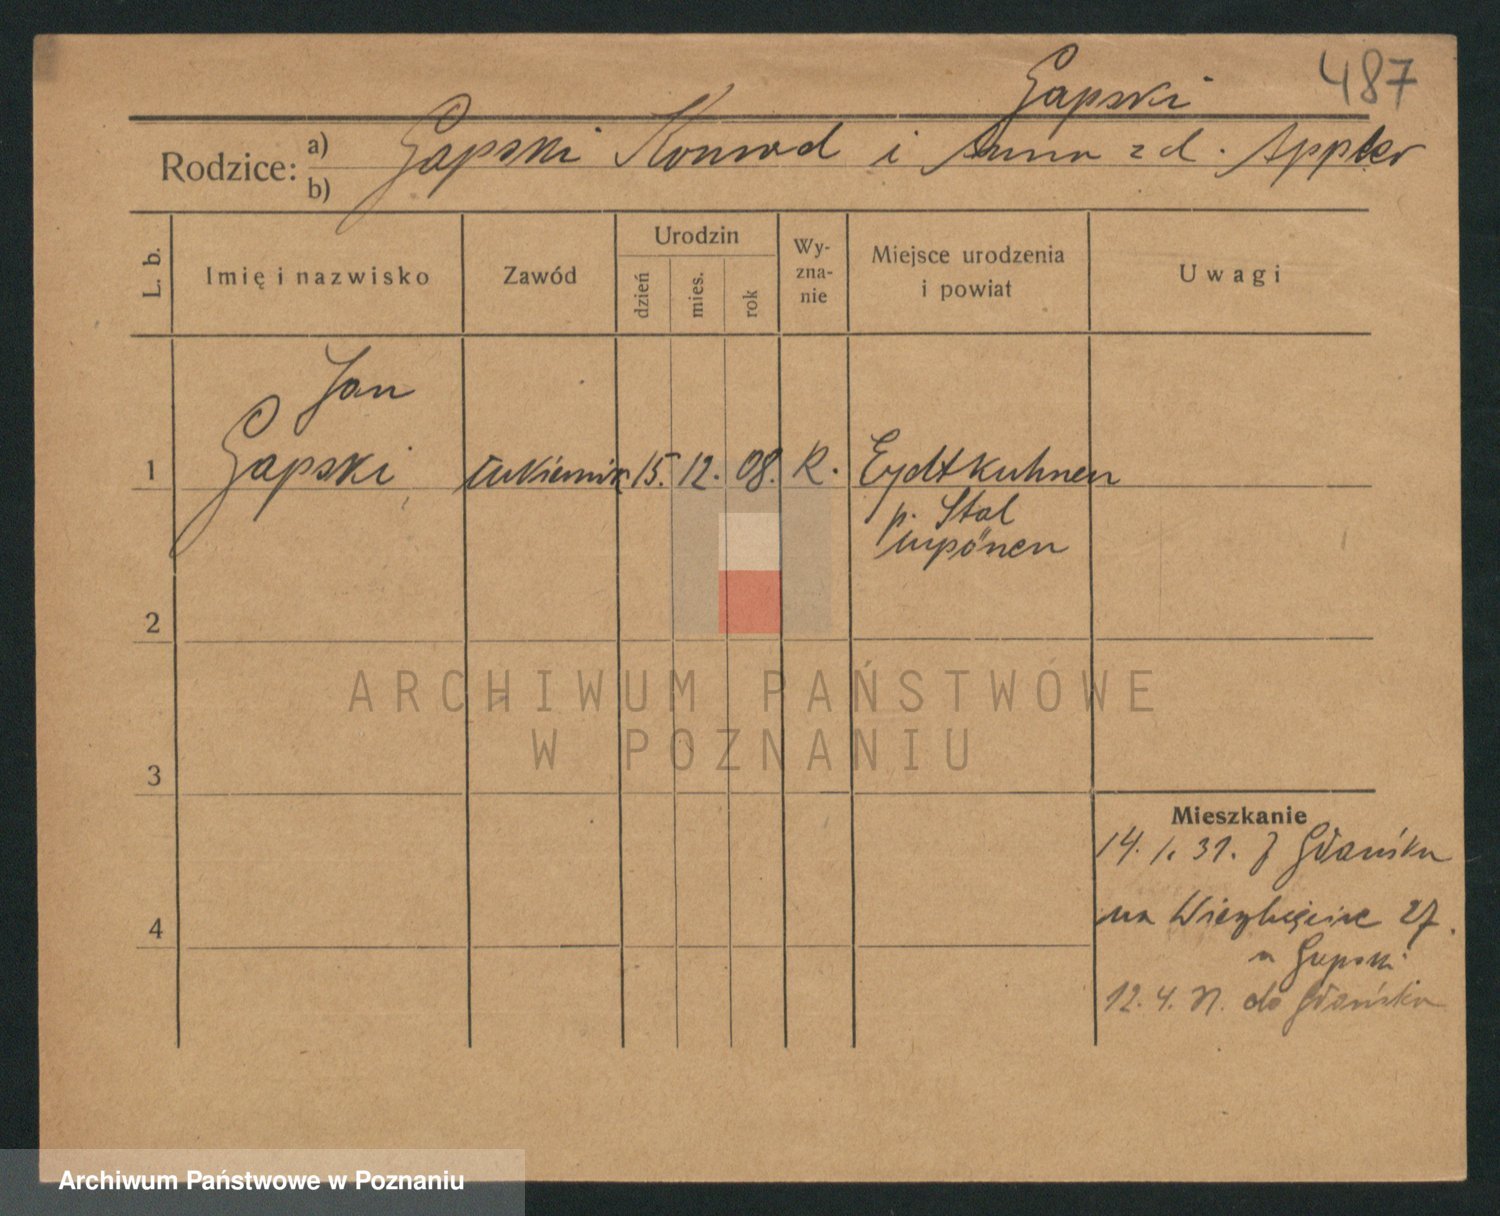 Gapski
487
Rodzice: a) b) Gapski Konrad i Anna z d. Appler
L. b.
Imię i nazwisko
Zawód
Urodzin
dzień
mies.
rok
Wy-
zna-
nie
Miejsce urodzenia
i powiat
Uwagi
Jan
1 Gapski cukiernik 15. 12. 08. R. Eydtkuhnen
p. Stal
lupönen
2
ARCHIWUM PAŃSTWOWE
W POZNANIU
3
Mieszkanie
14. 1. 31. z Gdańska
4
na Wierzbięcice 27.
u Gapski
12. 4. 31. do Gdańska
Archiwum Państwowe w Poznaniu